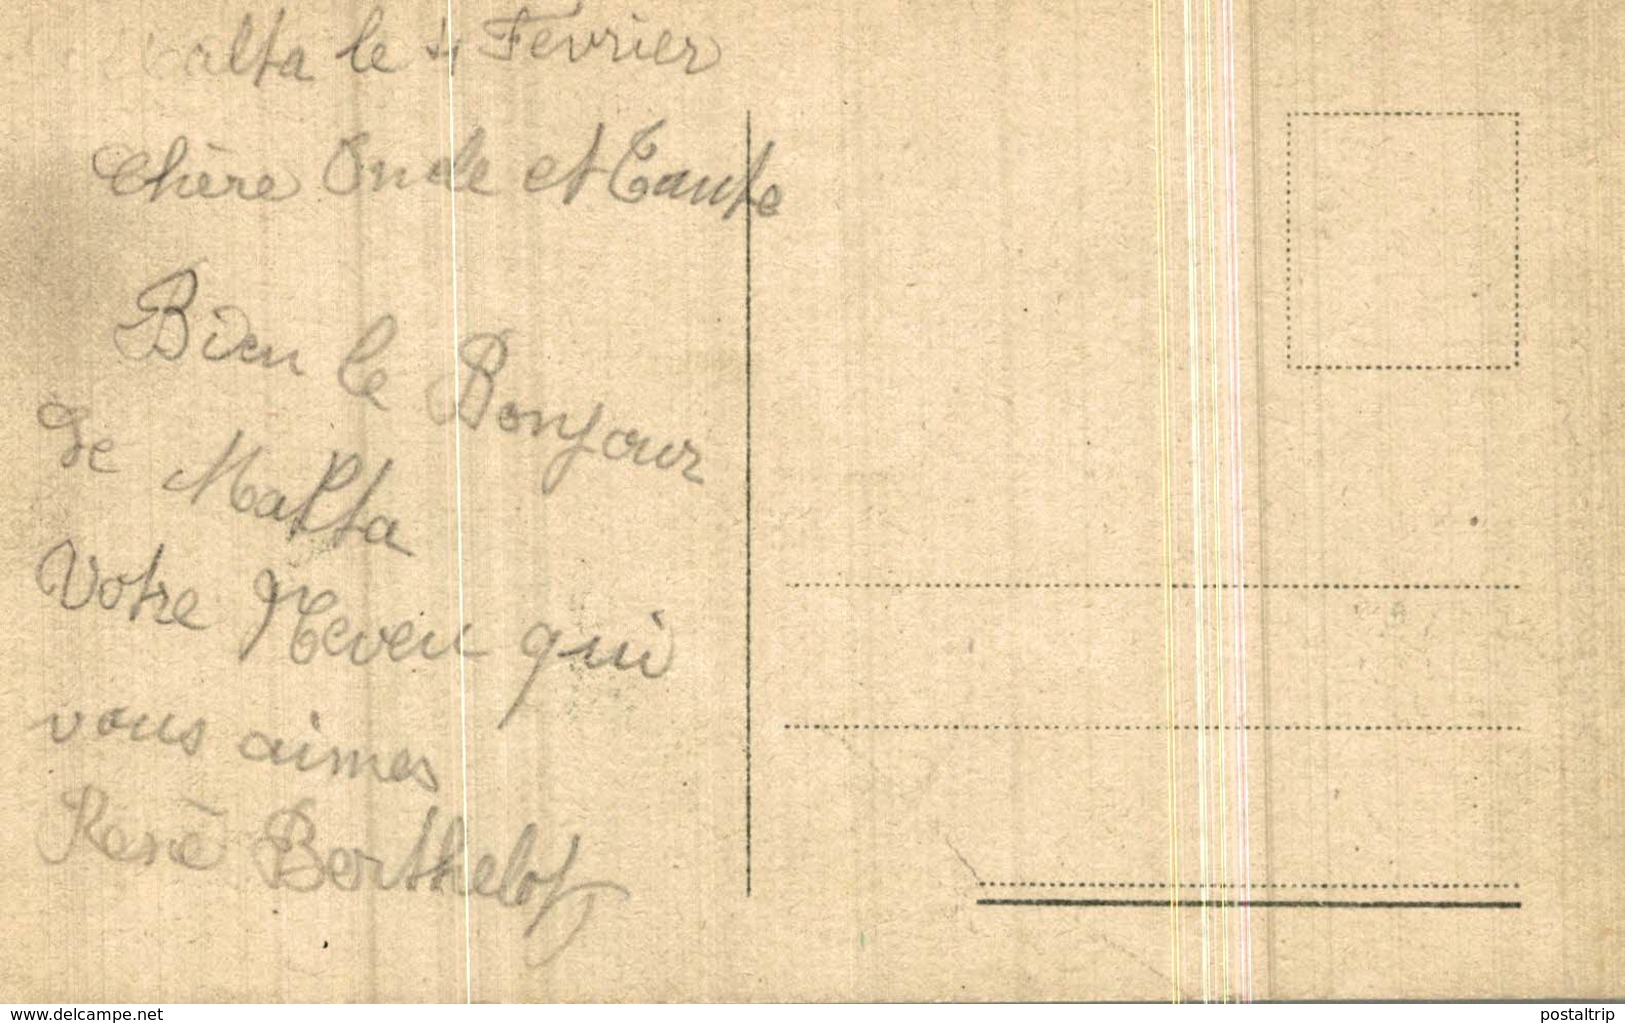 Malta le 4 Fevrier
Chère Oncle et Tante
Bien le Bonjour
de Malta
Votre Neveu qui
vous aimes
René Berthelot
www.delcampe.net
postaltrip